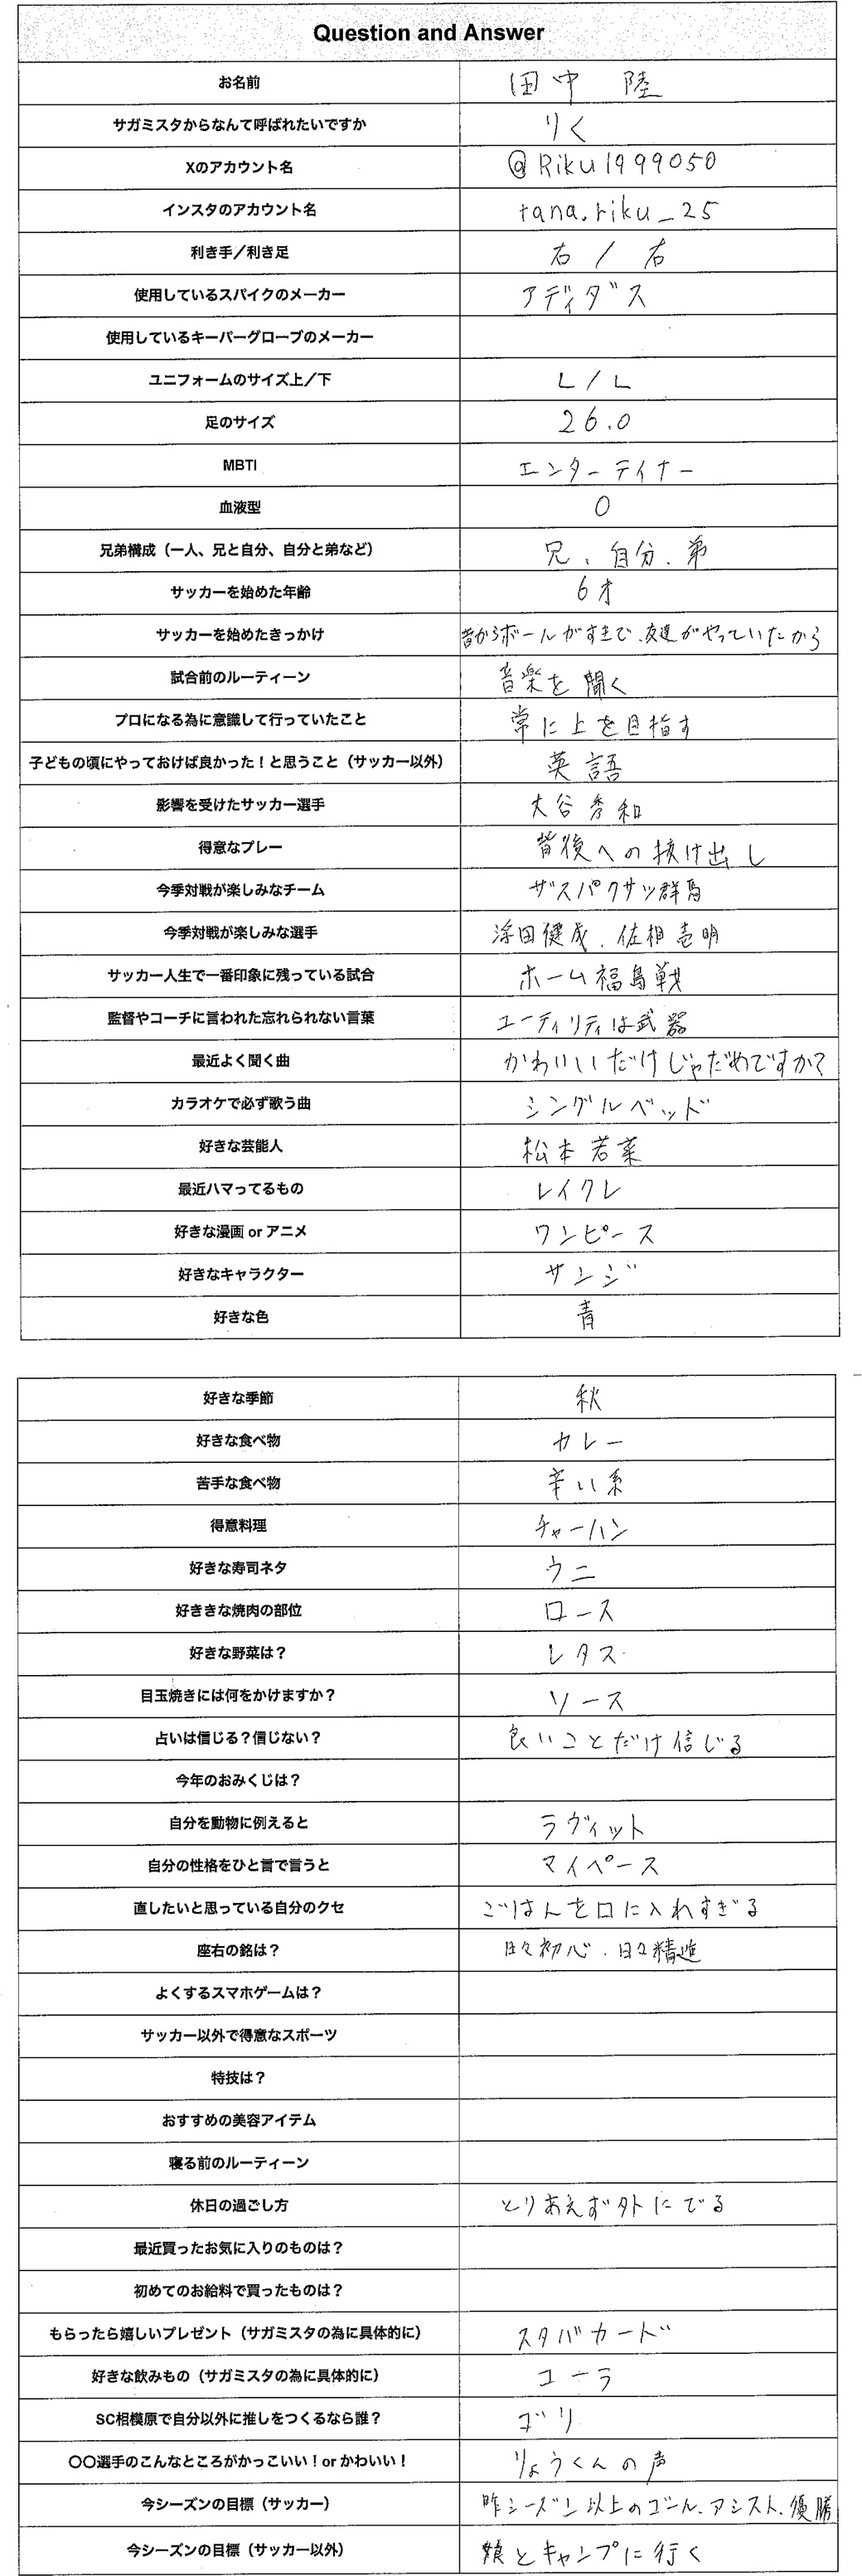 Question and Answer
お名前 田中 陸
サガミスタからなんて呼ばれたいですか りく
Xのアカウント名 @Riku1999050
インスタのアカウント名 tana.riku_25
利き手／利き足 右 / 右
使用しているスパイクのメーカー アディダス
使用しているキーパーグローブのメーカー
ユニフォームのサイズ上／下 L / L
足のサイズ 26.0
MBTI エンターテイナー
血液型 O
兄弟構成（一人、兄と自分、自分と弟など） 兄、自分、弟
サッカーを始めた年齢 6才
サッカーを始めたきっかけ 昔からボールがすきで、友達がやっていたから
試合前のルーティーン 音楽を聞く
プロになる為に意識して行っていたこと 常に上を目指す
子どもの頃にやっておけば良かった！と思うこと（サッカー以外） 英語
影響を受けたサッカー選手 大谷秀和
得意なプレー 背後への抜け出し
今季対戦が楽しみなチーム ザスパクサツ群馬
今季対戦が楽しみな選手 浮田健成、佐相壱明
サッカー人生で一番印象に残っている試合 ホーム福島戦
監督やコーチに言われた忘れられない言葉 ユーティリティは武器
最近よく聞く曲 かわいいだけじゃだめですか？
カラオケで必ず歌う曲 シングルベッド
好きな芸能人 松本若菜
最近ハマってるもの レイクレ
好きな漫画 or アニメ ワンピース
好きなキャラクター サンジ
好きな色 青
好きな季節 秋
好きな食べ物 カレー
苦手な食べ物 辛い系
得意料理 チャーハン
好きな寿司ネタ ウニ
好ききな焼肉の部位 ロース
好きな野菜は？ レタス
目玉焼きには何をかけますか？ ソース
占いは信じる？信じない？ 良いことだけ信じる
今年のおみくじは？
自分を動物に例えると ラヴィット
自分の性格をひと言で言うと マイペース
直したいと思っている自分のクセ ごはんを口に入れすぎる
座右の銘は？ 日々初心、日々精進
よくするスマホゲームは？
サッカー以外で得意なスポーツ
特技は？
おすすめの美容アイテム
寝る前のルーティーン
休日の過ごし方 とりあえず外にでる
最近買ったお気に入りのものは？
初めてのお給料で買ったものは？
もらったら嬉しいプレゼント（サガミスタの為に具体的に） スタバカード
好きな飲みもの（サガミスタの為に具体的に） コーラ
SC相模原で自分以外に推しをつくるなら誰？ ゴリ
〇〇選手のこんなところがかっこいい！or かわいい！ りょうくんの声
今シーズンの目標（サッカー） 昨シーズン以上のゴール、アシスト、優勝
今シーズンの目標（サッカー以外） 娘とキャンプに行く